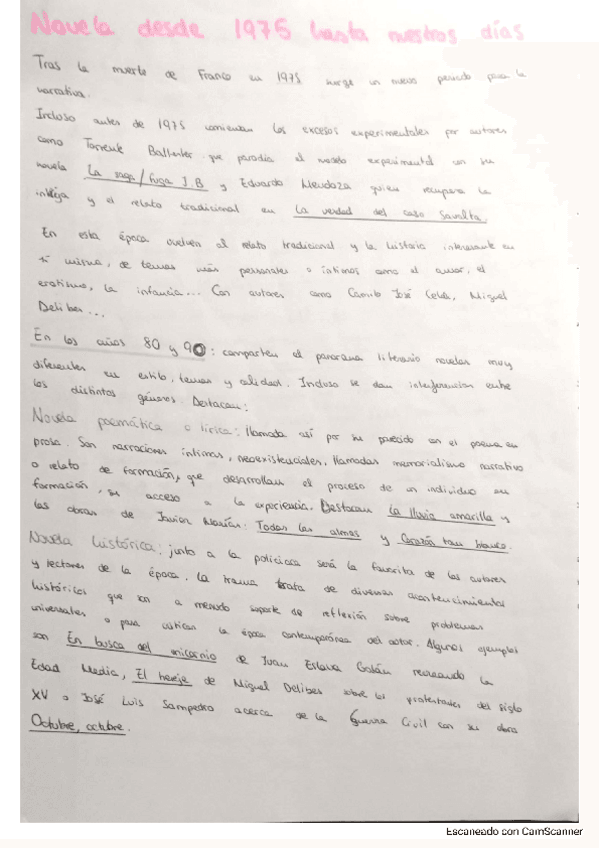 Novela desde 1975 hasta nuestros días
Tras la muerte de Franco en 1975 surge un nuevo periodo para la
narrativa.
Incluso antes de 1975 comienzan los excesos experimentales por autores
como Torrente Ballester que parodia el modelo experimental con su
novela La saga/fuga J.B y Eduardo Mendoza quien recupera la
intriga y el relato tradicional en La verdad del caso Savolta.
En esta época vuelven al relato tradicional y la historia interesante en
sí misma, de temas más personales o íntimos como el amor, el
erotismo, la infancia... Con autores como Camilo José Cela, Miguel
Delibes...
En los años 80 y 90: comparten el panorama literario novelas muy
diferentes en estilo, temas y calidad. Incluso se dan interferencias entre
los distintos géneros. Destacan:
Novela poemática o lírica: llamada así por su parecido con el poema en
prosa. Son narraciones íntimas, neoexistenciales, llamadas memorialismo narrativo
o relato de formación, que desarrollan el proceso de un individuo en
formación, su acceso a la experiencia. Destacan La lluvia amarilla y
las obras de Javier Marías: Todas las almas y Corazón tan blanco.
Novela histórica: junto a la policiaca será la favorita de los autores
y lectores de la época. La trama trata de diversos acontecimientos
históricos que son a menudo soporte de reflexión sobre problemas
universales o para criticar la época contemporánea del autor. Algunos ejemplos
son En busca del unicornio de Juan Eslava Galán recreando la
Edad Media, El hereje de Miguel Delibes sobre los protestantes del siglo
XV o José Luis Sampedro acerca de la Guerra Civil con su obra
Octubre, octubre.
Escaneado con CamScanner